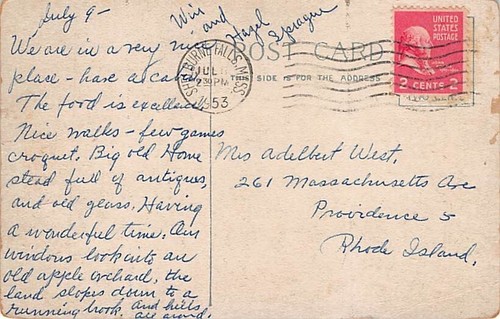 July 9-
Win
and
Hazel
Sprague
We are in a very nice
place - have a cabin
The food is excellent
Nice walks - few games
croquet. Big old Home
stead full of antiques,
and old glass. Having
a wonderful time. Our
windows look into an
old apple orchard, the
land slopes down to a
running brook. and hills
all around.
POST CARD
THIS SIDE IS FOR THE ADDRESS
SHELBURNE FALLS, MASS.
JUL
2 30 PM
1953
UNITED
STATES
POSTAGE
2 CENTS 2
Mrs Adelbert West,
261 Massachusetts Ave
Providence 5
Rhode Island.